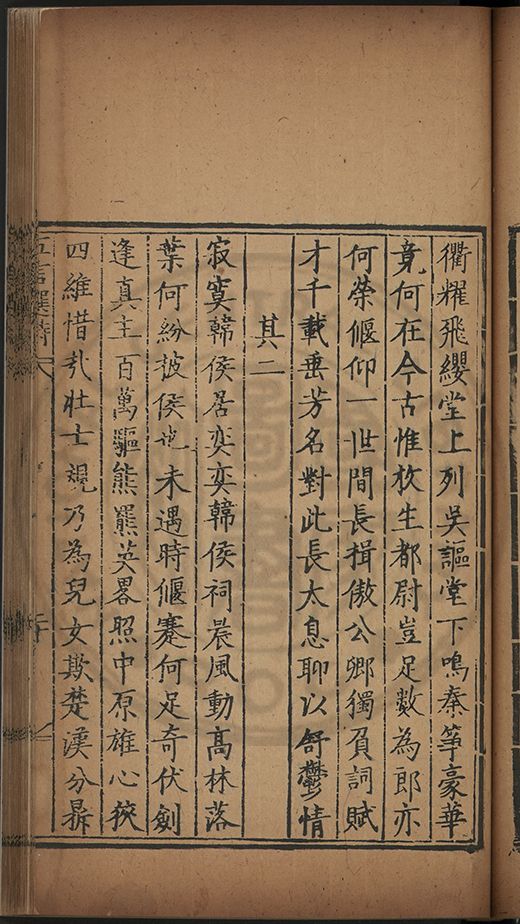 衢耀飛纓堂上列吳謳堂下鳴秦箏豪華
竟何在今古惟枚生都尉豈足數為郎亦
何榮偃仰一世間長揖傲公卿獨負詞賦
才千載垂芳名對此長太息聊以舒鬱情
其二
寂寞韓侯居奕奕韓侯祠晨風動高林落
葉何紛披侯也未遇時偃蹇何足奇伏劍
逢真主百萬驅熊羆英畧照中原雄心狹
四維惜哉壯士規乃為兒女欺楚漢分鼎
五言選詩